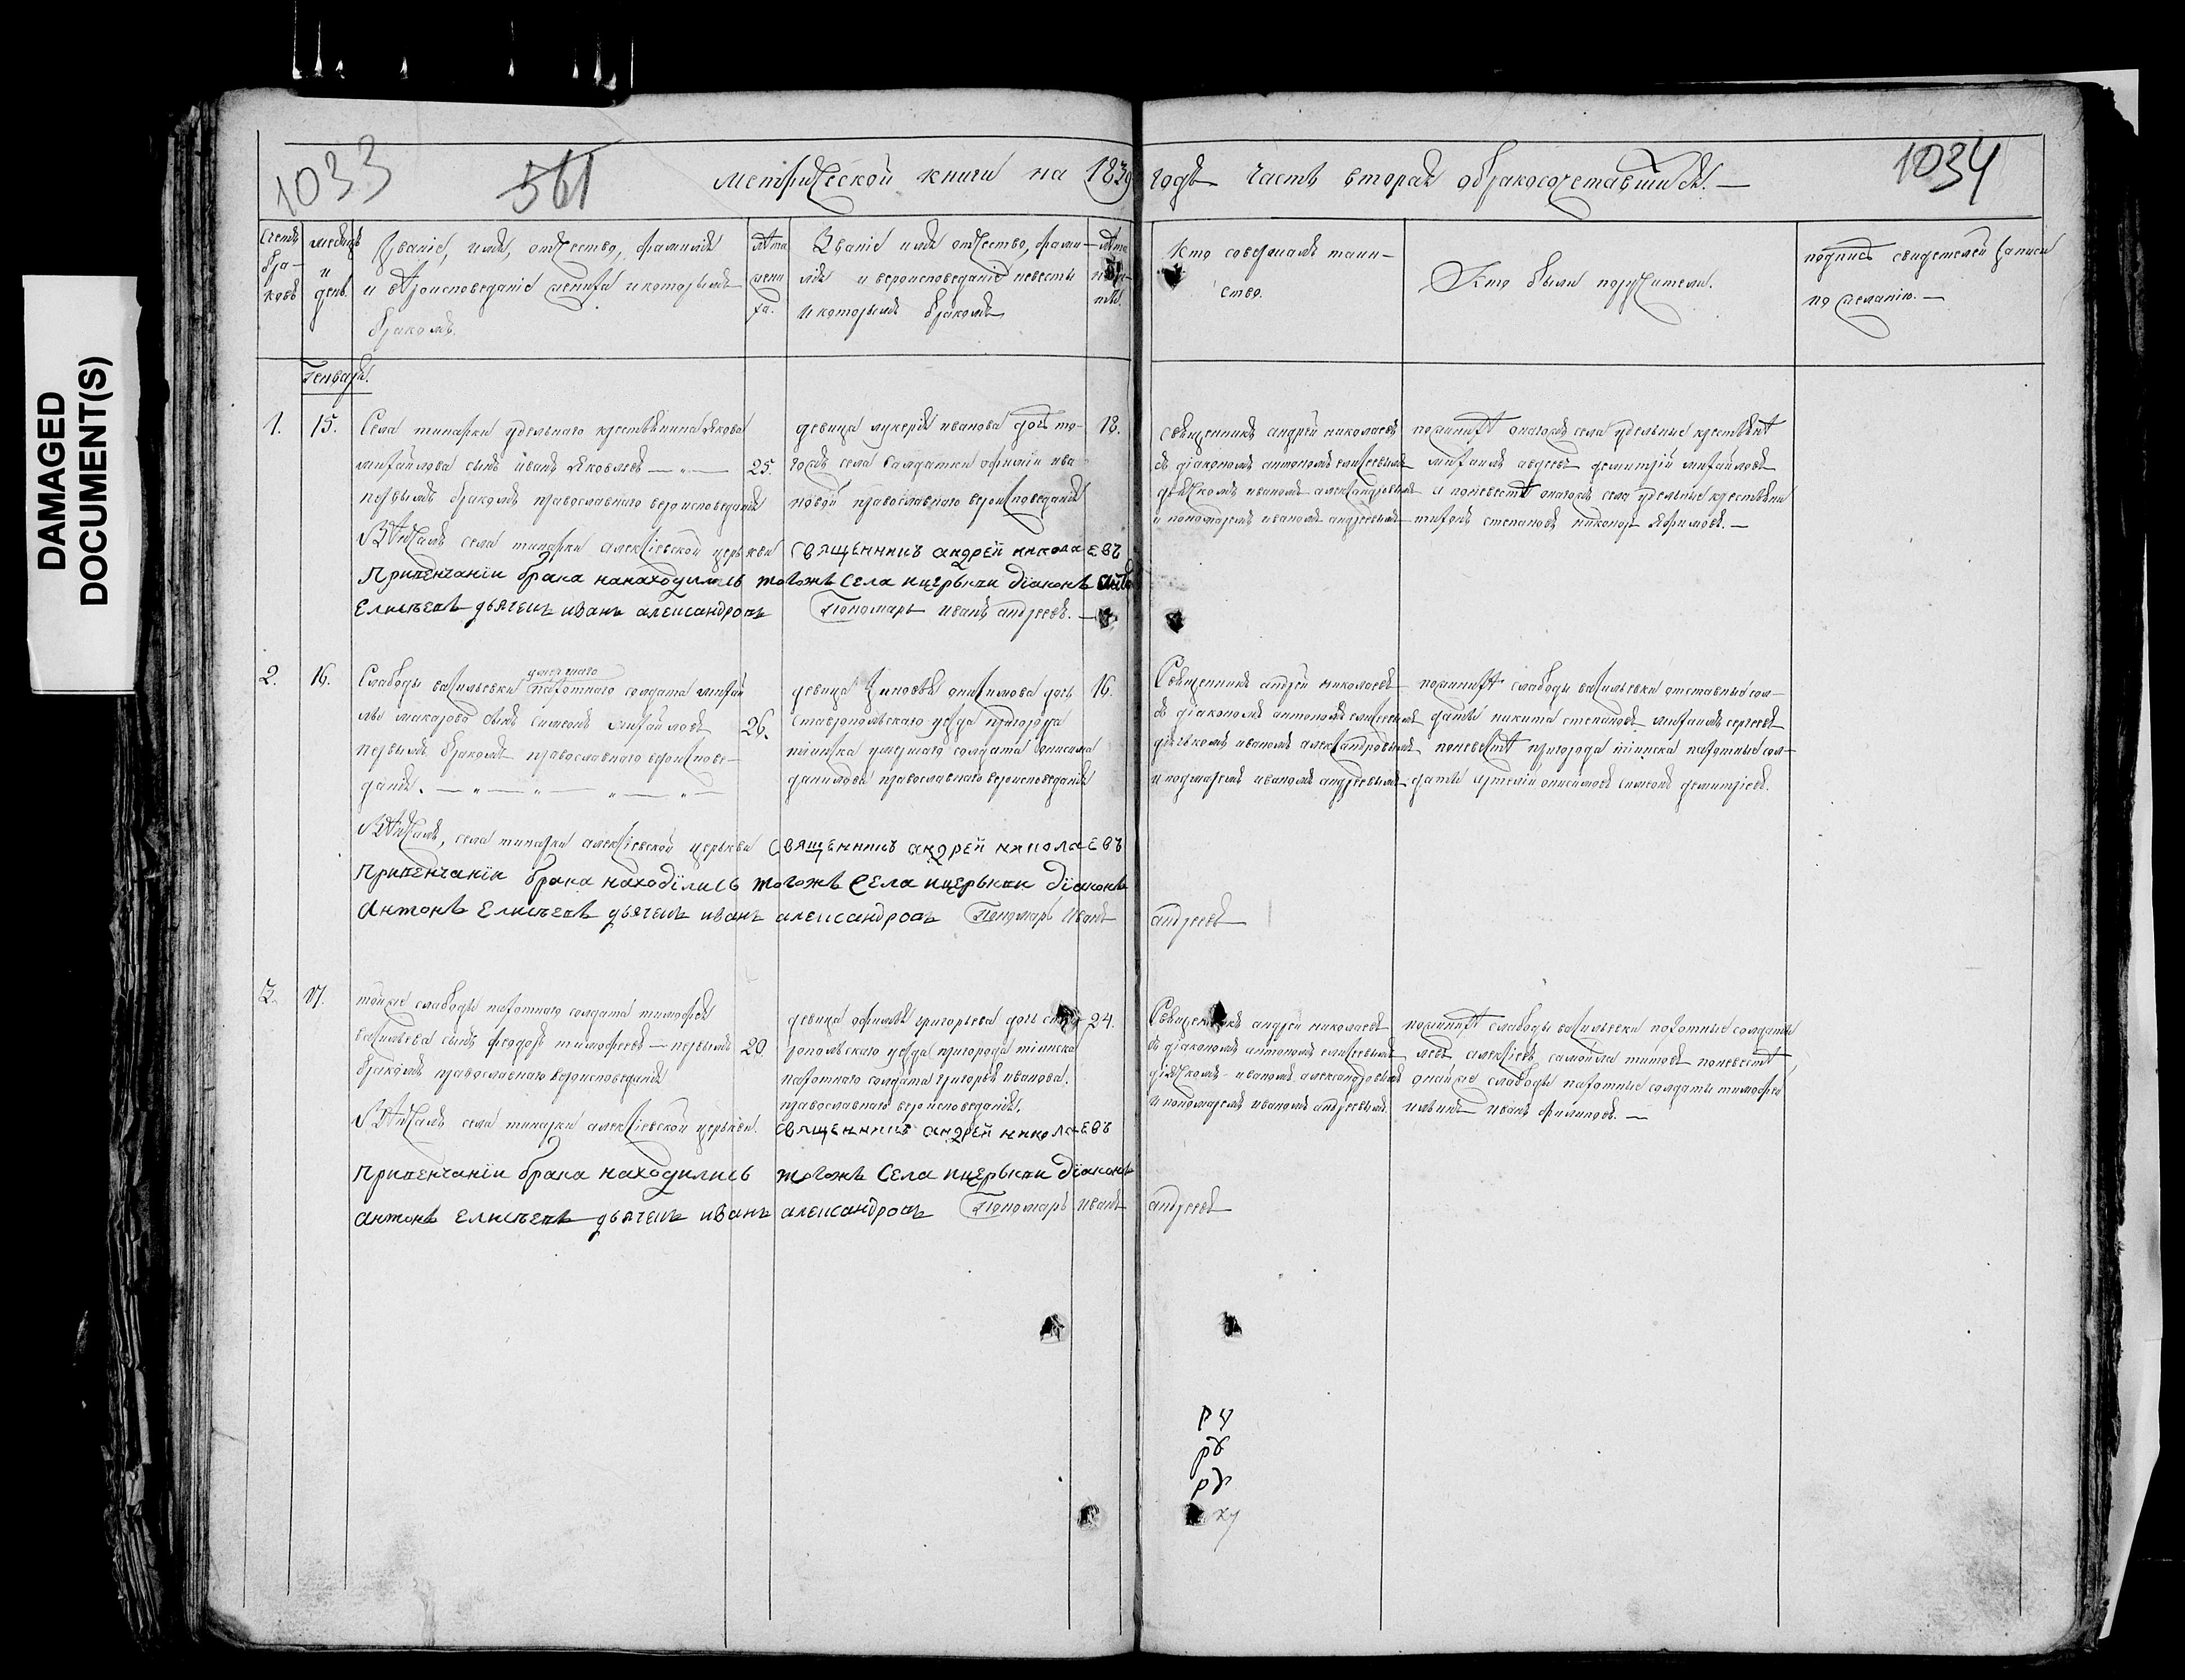 DAMAGED
DOCUMENT(S)
1033
561
метрической книги на 1839 годъ часть вторая обракосочетавшихся.
1034
Счетъ бра-ковъ
месяцъ и день.
Званіе, имя, отчество, фамилія
и вѣроисповеданіе жениха и которымъ
бракомъ.
лѣта жени ха.
Званіе имя отчество, фами-
лія и вероисповеданіе невесты
и которымъ бракомъ
лѣта
Кто совершалъ таин-
ство.
Кто были поручители.
подпись свидетелей записи
по желанію.
Генваря.
1.
15.
Села тинарки удельнаго крестьянина Якова
михайлова сынъ иванъ Яковлевъ
первымъ бракомъ православнаго вероисповеданія
25.
девица лукерія иванова дочь то-
гожъ села салдатки офиміи ива
новой православнаго вероисповеданія
18.
священникъ андрей николаевъ
съ діакономъ антономъ елисеевымъ
дьячкомъ иваномъ александровымъ
и пономаремъ иваномъ андреевымъ
пожених онагожъ села удельные крестьян
михаилъ авдеевъ демитрій михайловъ
и поневест онагожъ села удельные крестьяни
титъ степановъ никаноръ Яфимовъ.
Вѣнчалъ села тинарки алексіевской церькви священникъ андрей николаевъ
Привенчаніи брака нанаходились тогожъ села ицерькви діаконъ
Елисѣевъ дьячекъ иванъ александровъ Пономарь иванъ андреевъ.
2.
16.
Слабоды васильевки умершаго пахотнаго солдата михай
лы макарова сынъ симеонъ михайловъ
первымъ бракомъ православнаго вероиспове-
данія.
26.
девица Зиновья онисимова дочь
ставропольскаго уезда пригорода
тіинска умершаго солдата онисима
данилова православнаго вероисповеданія
16.
Священникъ андрей николаевъ
съ діакономъ антономъ елисеевымъ
дьячькомъ иваномъ александровымъ
и подмаремъ иваномъ андреевымъ
пожених слабоды васильевки отставные сол-
даты никита степановъ михаилъ сергеевъ
поневест пригорода тіинска пахотные сол-
даты артемій онисимовъ симеонъ демитріевъ.
Вѣнчалъ, села тинарки алексіевской церькви священникъ андрей николаевъ
Привенчаніи брака находились тогожъ села ицерькви діаконъ
Антонъ Елисѣевъ дьячекъ иванъ александровъ Пономарь иванъ андреевъ
3.
17.
тойже слабоды пахотнаго солдата тимофея
васильева сынъ феодоръ тимофеевъ первымъ
бракомъ православнаго вероисповеданія
20
девица офимья григорьева дочь став
ропольскаго уезда пригорода тіинска
пахотнаго солдата григорья иванова.
православнаго вероисповеданія.
24.
Священникъ андрей николаевъ
съ діакономъ антономъ елисеевымъ
дьячкомъ иваномъ александровымъ
и пономаремъ иваномъ андреевымъ.
пожених слабоды васильевки пахотные солдаты
левъ алексіевъ самойла титовъ поневест
онойже слабоды пахотные солдаты тимофей
ильинъ иванъ филиповъ.
Вѣнчалъ села тинарки алексіевской церькви. священникъ андрей николаевъ
Привенчаніи брака находились тогожъ села ицерькви діаконъ
антонъ елисѣевъ дьячекъ иванъ александровъ Пономарь иванъ андреевъ